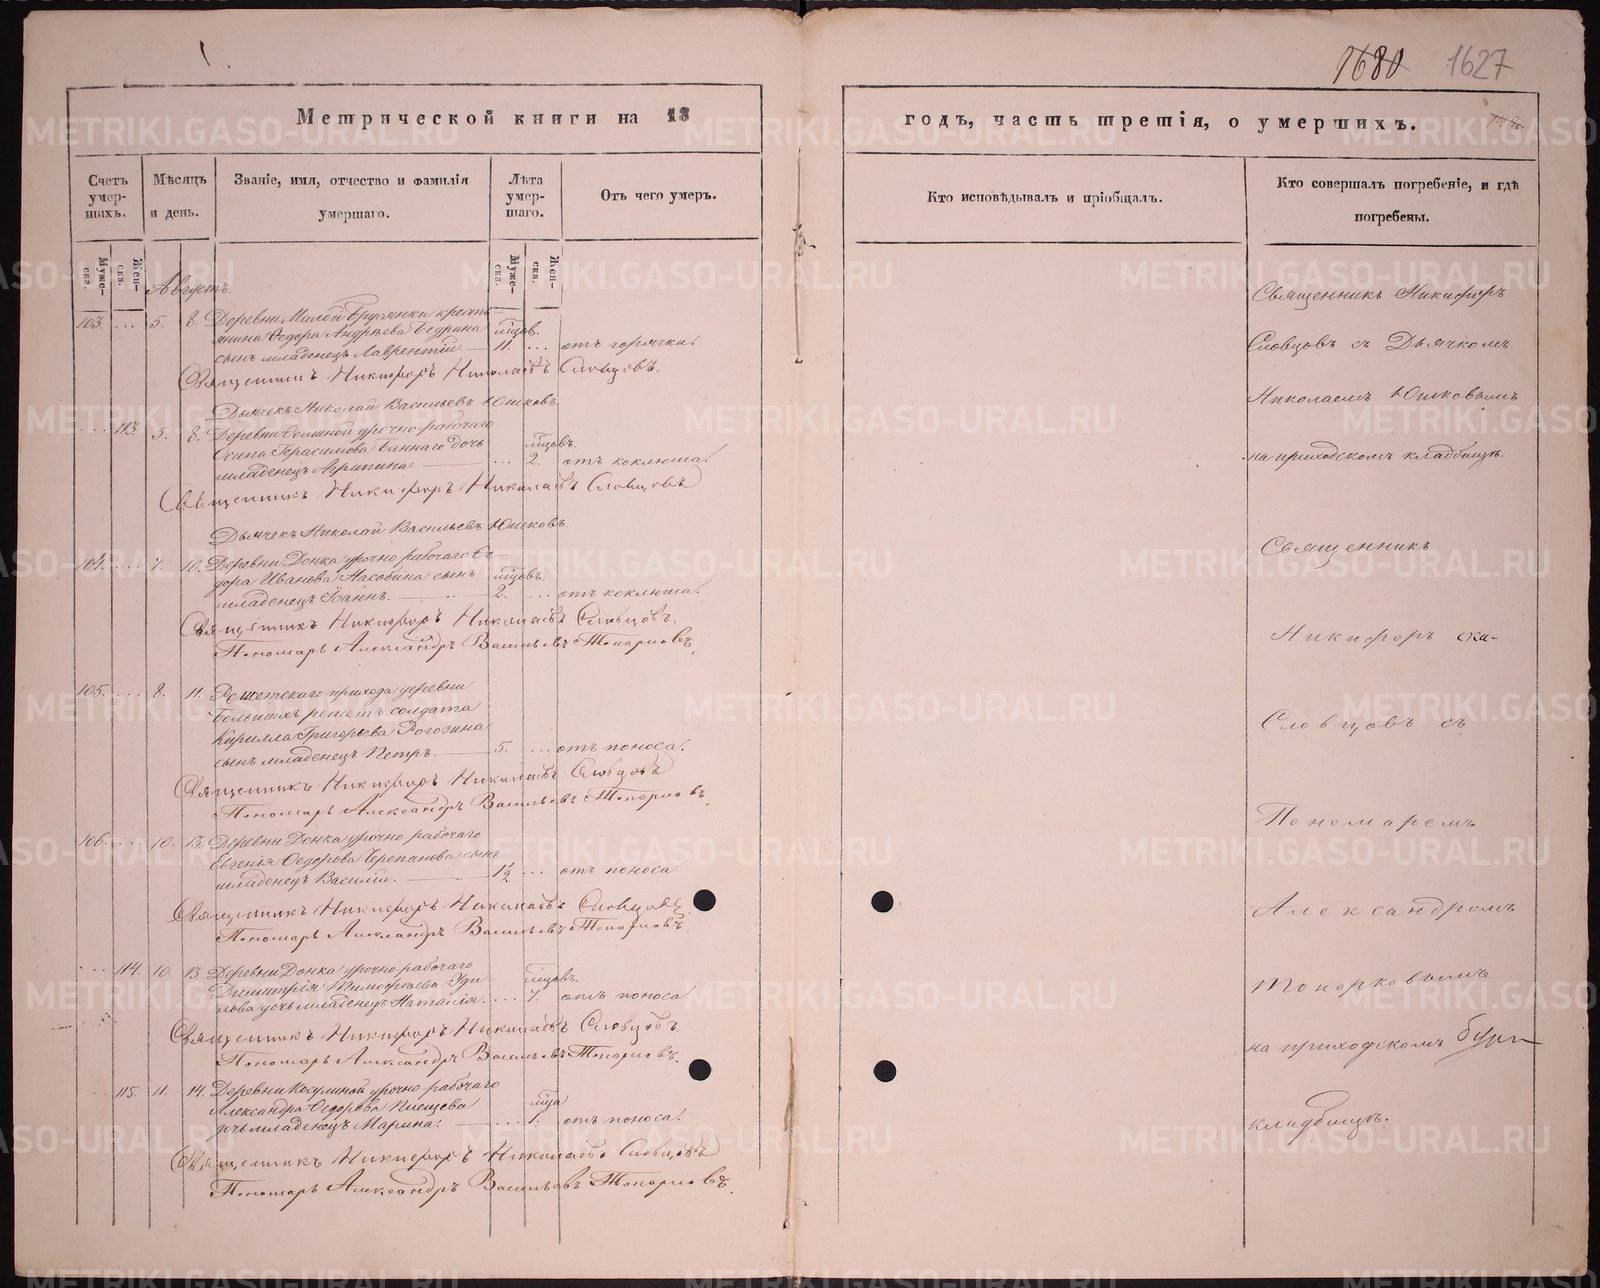 1680 1627
Метрической книги на 18
годъ, часть третія, о умершихъ.
Счетъ умер-шихъ.
Мѣсяцъ и день.
Званіе, имя, отчество и фамилія умершаго.
Лѣта умер-шаго.
Отъ чего умеръ.
Кто исповѣдывалъ и пріобщалъ.
Кто совершалъ погребеніе, и гдѣ погребены.
Муже-ска.
Жен-ска.
Муже-ска.
Жен-ска.
Августъ.
103. ... 5. 8. Деревни Малой Брусянки кресть-
янина Ѳедора Андрѣева Бедрина мцов.
сынъ младенецъ Лаврентій. 11. ... отъ горячки.
Священникъ Никифоръ Николаевъ Словцовъ.
Дьячекъ Николай Васильевъ Юшковъ.
... 113. 5. 8. Деревни урочно рабочаго
Осипа Герасимова дочь мцовъ.
младенецъ Агрипина. ... 2. отъ коклюша.
Священникъ Никифоръ Николаевъ Словцовъ
Дьячекъ Николай Васильевъ Юшковъ.
104. ... 7. 10. Деревни Донка урочно рабочаго Ѳе-
дора Иванова сынъ мцовъ.
младенецъ Іоаннъ. 2. ... отъ коклюша.
Священникъ Никифоръ Николаевъ Словцовъ.
Пономарь Александръ Васильевъ Топорковъ.
105. ... 8. 11. Решетскаго прихода деревни
Большихъ решетъ солдата
Кирилла Григорьева Рогозина
сынъ младенецъ Петръ. 5. ... отъ поноса.
Священникъ Никифоръ Николаевъ Словцовъ
Пономарь Александръ Васильевъ Топорковъ.
106. ... 10. 13. Деревни Донка урочно рабочаго
Евгенія Ѳедорова Черепанова сынъ
младенецъ Василій. 1½ ... отъ поноса
Священникъ Никифоръ Николаевъ Словцовъ
Пономарь Александръ Васильевъ Топорковъ.
... 114. 10. 13. Деревни Донка урочно рабочаго
Димитрія Тимофѣева мцовъ.
дочь младенецъ Наталія. ... 7. отъ поноса
Священникъ Никифоръ Николаевъ Словцовъ
Пономарь Александръ Васильевъ Топорковъ.
... 115. 11. 14. Деревни Косулиной урочно рабочаго
Александра Ѳедорова Плещева мца
дочь младенецъ Марина. ... 1. отъ поноса.
Священникъ Никифоръ Николаевъ Словцовъ
Пономарь Александръ Васильевъ Топорковъ.
Священникъ Никифоръ
Словцовъ съ Дьячкомъ
Николаемъ Юшковымъ
на приходскомъ кладбищѣ.
Священникъ
Никифоръ
Словцовъ съ
Пономаремъ
Александромъ
Топорковымъ
на приходскомъ
кладбищѣ.
METRIKI.GASO-URAL.RU